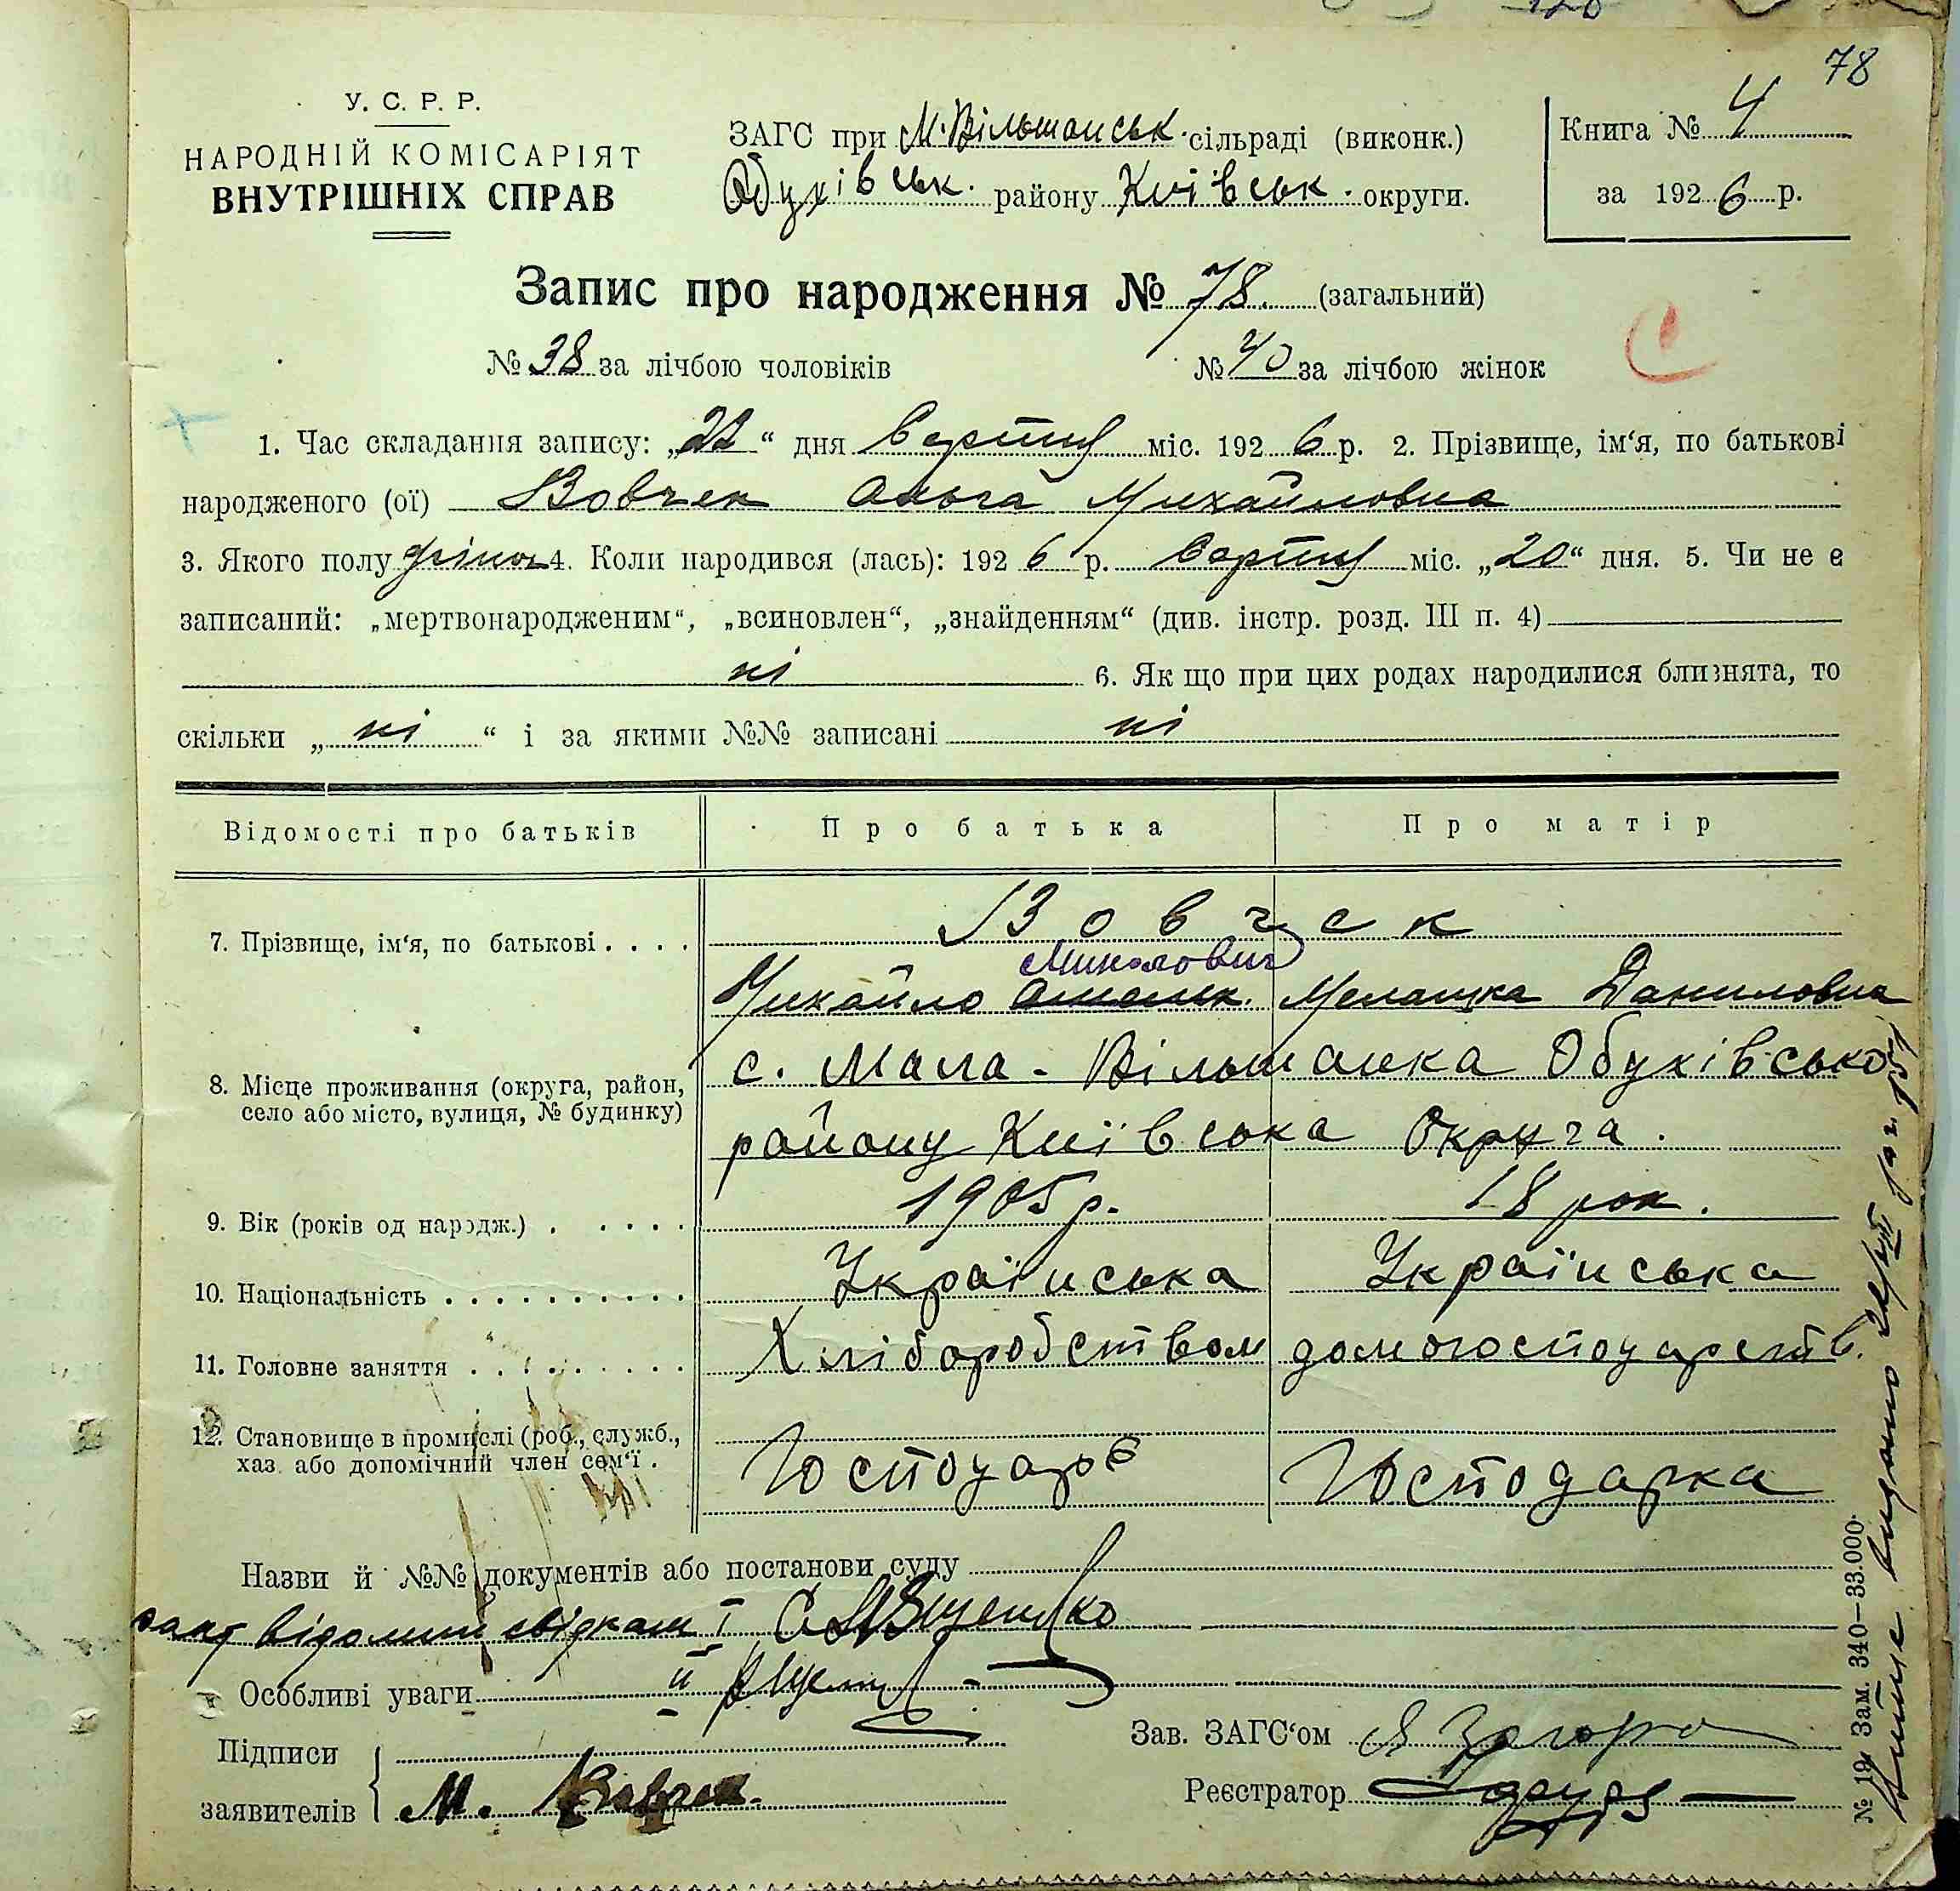 78
У. С. Р. Р.
НАРОДНІЙ КОМІСАРІЯТ
ВНУТРІШНІХ СПРАВ
ЗАГС при М.Вільшанськ. сільраді (виконк.)
Обухівськ. району Київськ. округи.
Книга № 4
за 1926 р.
Запис про народження № 78. (загальний)
№ 38 за лічбою чоловіків № 40 за лічбою жінок
1. Час складання запису: „22“ дня Серпня міс. 1926 р. 2. Прізвище, ім‘я, по батькові
народженого (ої) Вовчек Ольга Михайловна
3. Якого полу жіноч 4. Коли народився (лась): 1926 р. Серпня міс. „20“ дня. 5. Чи не є
записаний: „мертвонародженим“, „всиновлен“, „знайденням“ (див. інстр. розд. III п. 4)
ні 6. Як що при цих родах народилися близнята, то
скільки „ні“ і за якими №№ записані ні
Відомості про батьків Про батька Про матір
7. Прізвище, ім‘я, по батькові . . . . Вовчек
Миколович
Михайло Мелашка Даниловна
8. Місце проживання (округа, район, село або місто, вулиця, № будинку) с. Мала-Вільшанка Обухівсько
району Київська Округа.
9. Вік (років од народж.) . . . . . 1905 р. 18 рок.
10. Національність . . . . . . . . . . Українська Українська
11. Головне заняття . . . . . . . . . Хліборобством домогосподарств.
12. Становище в промислі (роб., служб., хаз. або допомічний член сем‘ї . Господарь Господарка
Назви й №№ документів або постанови суду
відомий свідкам I
Особливі уваги II
Підписи
заявителів М. Вовчек.
Зав. ЗАГС‘ом
Реєстратор
№ 19. Зам. 340—33.000.